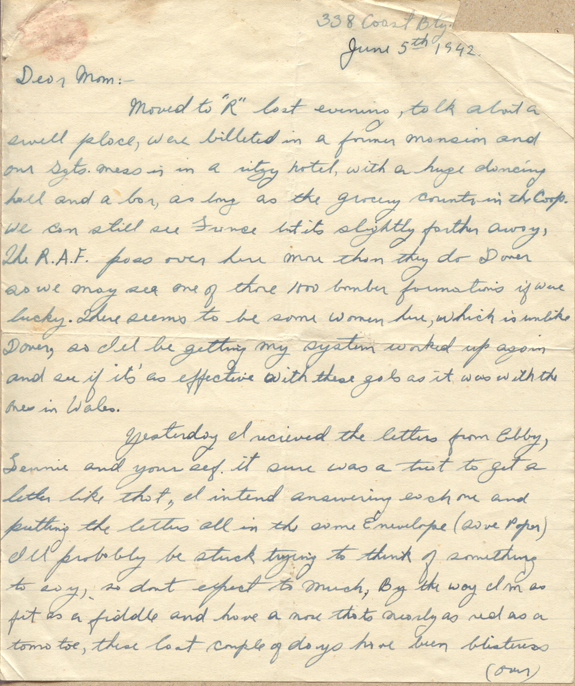 338 Coast Bty.
June 5th 1942.
Dear Mom:-
Moved to "R" last evening, talk about a
swell place, were billeted in a former mansion and
our Sgts. mess is in a ritzy hotel, with a huge dancing
hall and a bar, as long as the grocery counter in the Coop.
We can still see France but its slightly farther away,
The R.A.F. pass over here more than they do Dover
so we may see one of those 1000 bomber formations if were
lucky. There seems to be some women here, which is unlike
Dover, so I'll be getting my system worked up again
and see if it's as effective with these gals as it was with the
ones in Wales.
Yesterday I recieved the letters from Ebby,
Fannie and your self, it sure was a treat to get a
letter like that, I intend answering each one and
putting the letters all in the same Envelope (save Paper)
I'll probably be stuck trying to think of something
to say, so dont expect to much, By the way I'm as
fit as a fiddle and have a nose thats nearly as red as a
tomatoe, these last couple of days have been blisteress
(over)